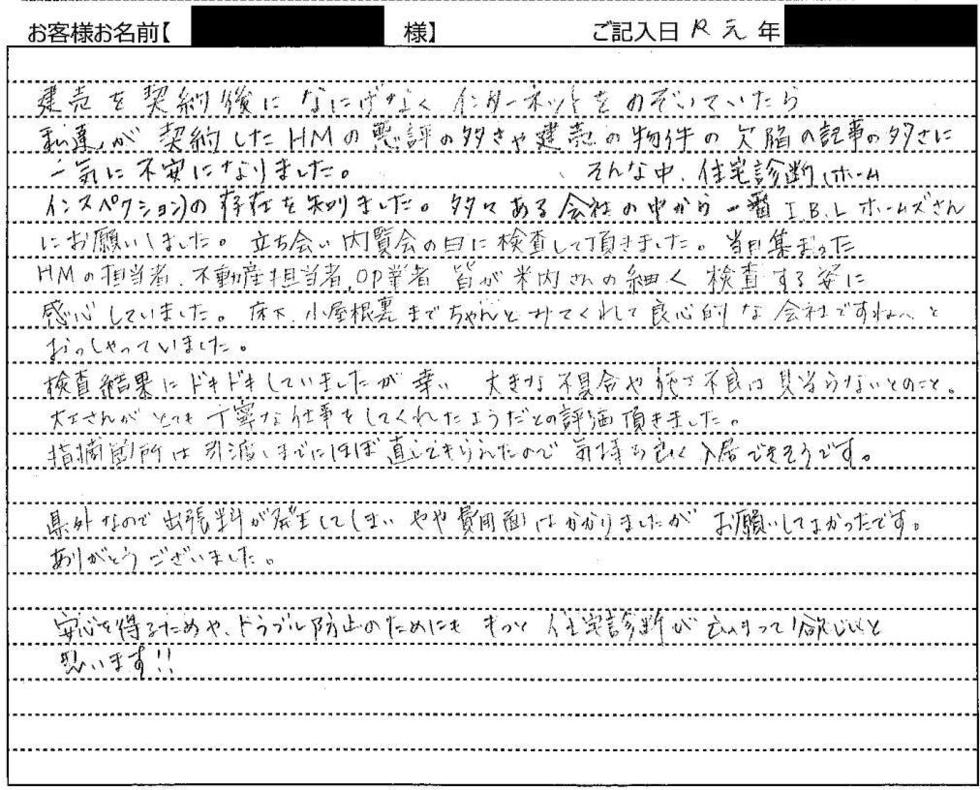 お客様お名前【 様】 ご記入日 R元年
建売を契約後になにげなくインターネットをのぞいていたら
私達が契約したHMの悪評の多さや建売の物件の欠陥の記事の多さに
一気に不安になりました。 そんな中、住宅診断(ホーム
インスペクション)の存在を知りました。多々ある会社の中から一番I.B.Lホームズさん
にお願いしました。立ち会い内覧会の日に検査して頂きました。当日集まった
HMの担当者、不動産担当者、OP業者 皆が米内さんの細く検査する姿に
感心していました。床下、小屋根裏までちゃんとみてくれて良心的な会社ですねぇと
おっしゃっていました。
検査結果にドキドキしていましたが幸い 大きな不具合や施工不良は見当らないとのこと。
大工さんがとても丁寧な仕事をしてくれたようだとの評価頂きました。
指摘箇所は引渡しまでにほぼ直してきられたので気持ち良く入居できそうです。
県外なので出張料が発生してしまい やや費用面はかかりましたが お願いしてよかったです。
ありがとうございました。
安心を得るためや、トラブル防止のためにも もっと住宅診断が広まって欲しいと
思います!!